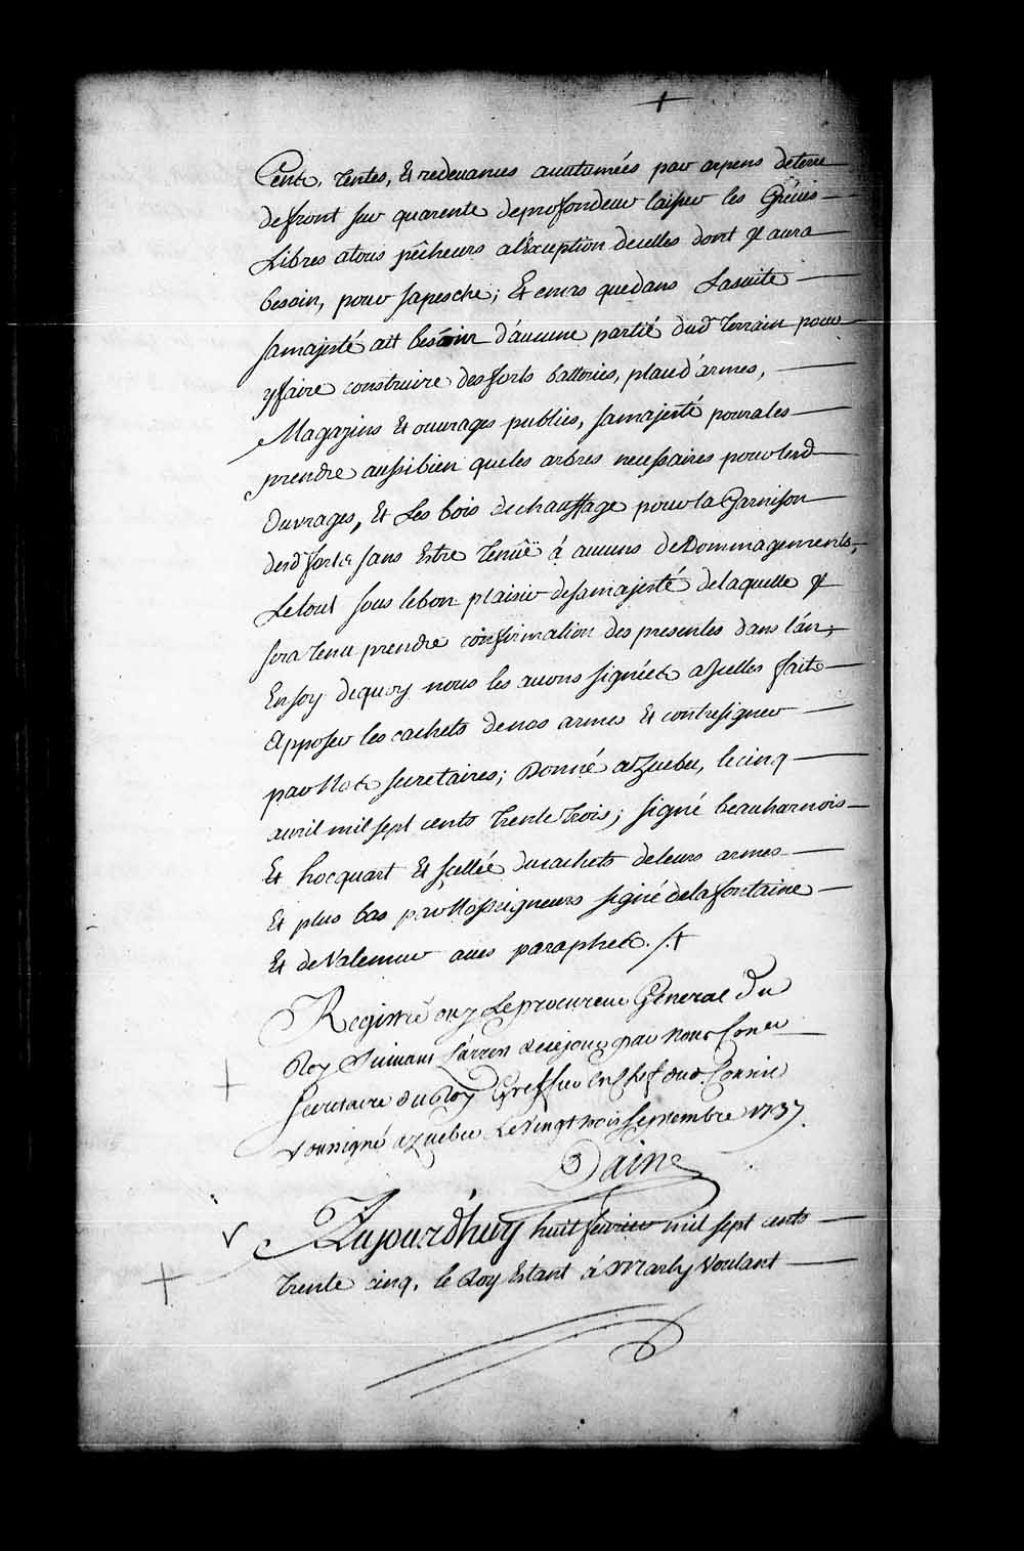 Cents, rentes, Et redevances accutumées par arpens deterre
defront sur quarente deprofondeur laisser les Gréves
Libres atous pêcheurs al'Exception decelles dont Il aura
besoin, pour sapesche; Et encas quedans Lasuite
samajesté att besoin d'aucune partié dud. Terrain pour
yfaire construire desforts batteries, placed'armes,
Magazins Et ouvrages publics, samajesté pourales
prendre aussibien queles arbres necessaires pourlesd
Ouvrages, Et Les bois dechauffage pourla Garnison
desd forts sans Estre Tenuë á aucuns deDommagements,
Letout sous lebon plaisir desamajesté delaquelle Il
sera tenu prendre confirmation des presentes dans l'án;
Enfoy dequoy nous les avons signées aIcelles faite
Apposer les cachets denos armes Et contresigner
par Nos secretaires; Donné aQuebec, lecinq
avril mil sept cents Trente Trois; signé beauharnois
Et hocquart Et scellée ducachets deleurs armes
Et plus bas par Nosseigneurs signé delafontaine
Et deValemur avec paraphes. /.+
Registré ouy Leprocureur General Du
Roy Suivant L'arrest decejour par nous Coner
Secretaire du Roy Greffier En Chef dud. Conseil
soussigné aquebec Levingt trois septembre 1737.
Daine
Aujourd'huy huit fevrier mil sept cents
trente cinq, le Roy Estant á Marly Voulant